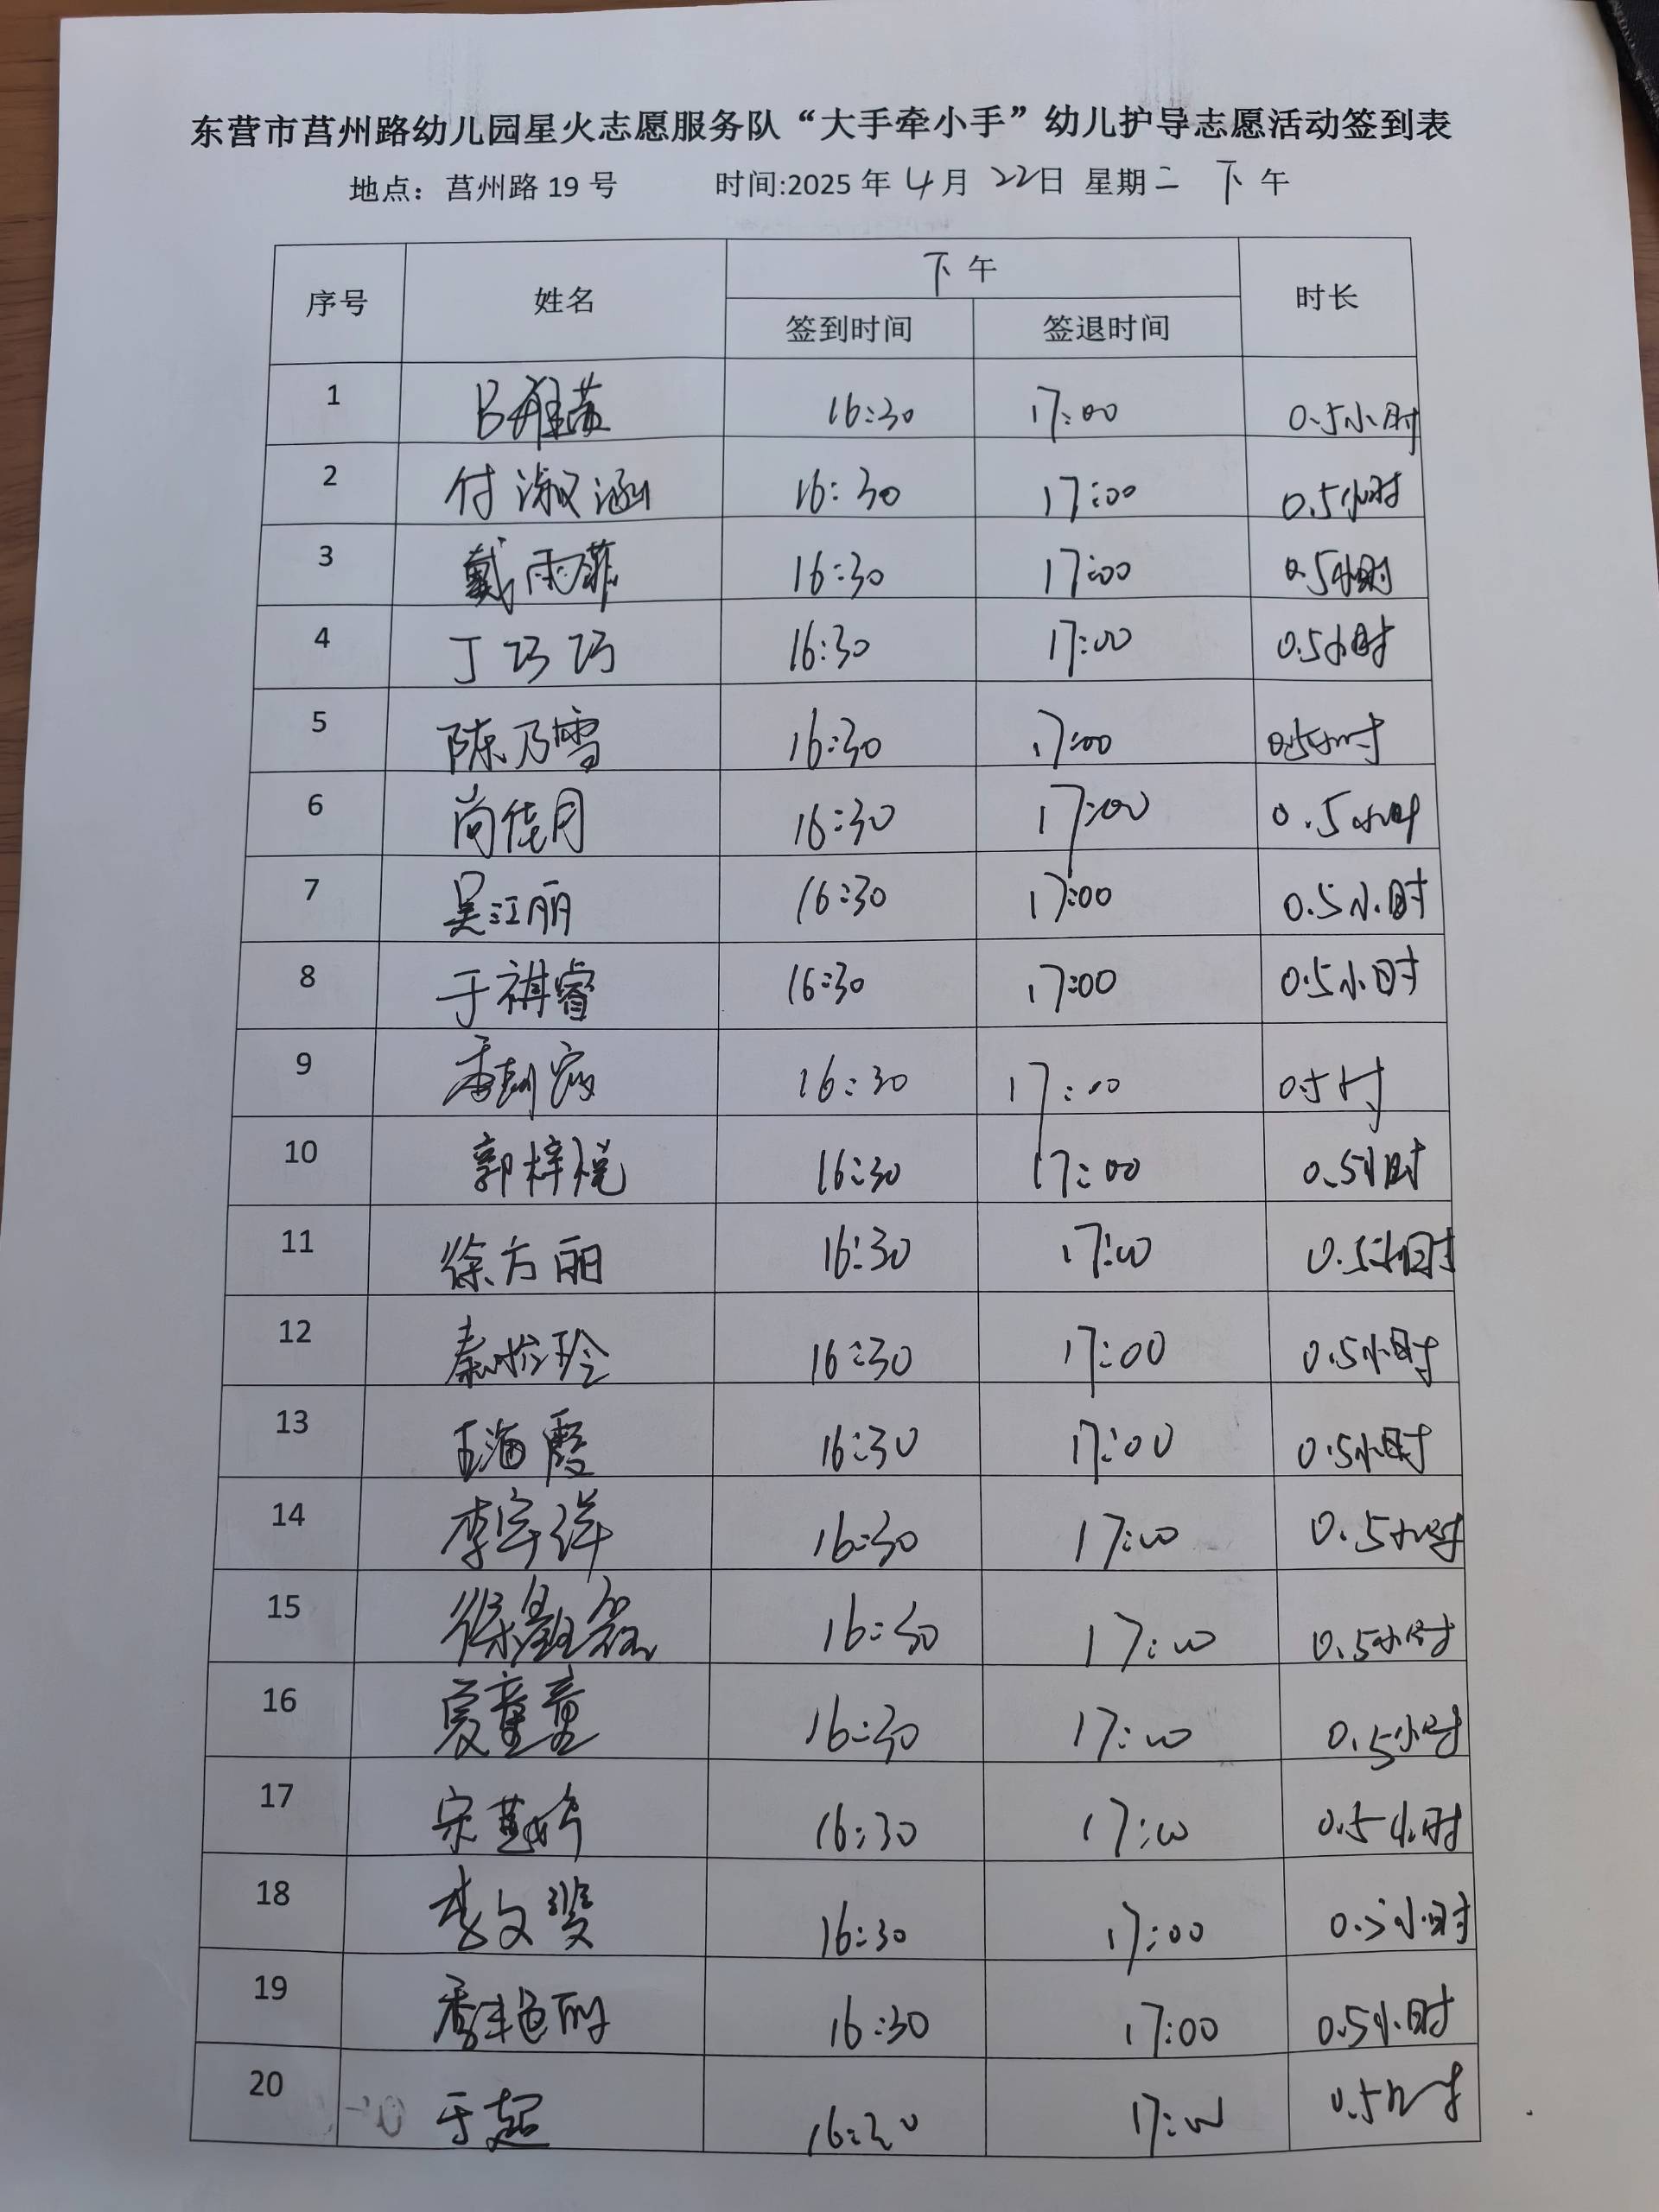 东营市莒州路幼儿园星火志愿服务队“大手牵小手”幼儿护导志愿活动签到表
地点：莒州路 19 号 时间:2025 年 4 月 22日 星期二 下午
序号 姓名 下午 时长
签到时间 签退时间
1 16:30 17:00 0.5小时
2 付淑涵 16:30 17:00 0.5小时
3 戴雨菲 16:30 17:00 0.5小时
4 丁巧巧 16:30 17:00 0.5小时
5 陈乃雪 16:30 17:00 0.5小时
6 尚佳月 16:30 17:00 0.5小时
7 吴江丽 16:30 17:00 0.5小时
8 于祺睿 16:30 17:00 0.5小时
9 16:30 17:00
10 郭梓悦 16:30 17:00 0.5小时
11 徐方丽 16:30 17:00 0.5小时
12 16:30 17:00 0.5小时
13 王海霞 16:30 17:00 0.5小时
14 李宇祥 16:30 17:00 0.5小时
15 16:30 17:00 0.5小时
16 夏童童 16:30 17:00 0.5小时
17 16:30 17:00 0.5小时
18 16:30 17:00 0.5小时
19 16:30 17:00 0.5小时
20 于超 16:30 17:00 0.5小时